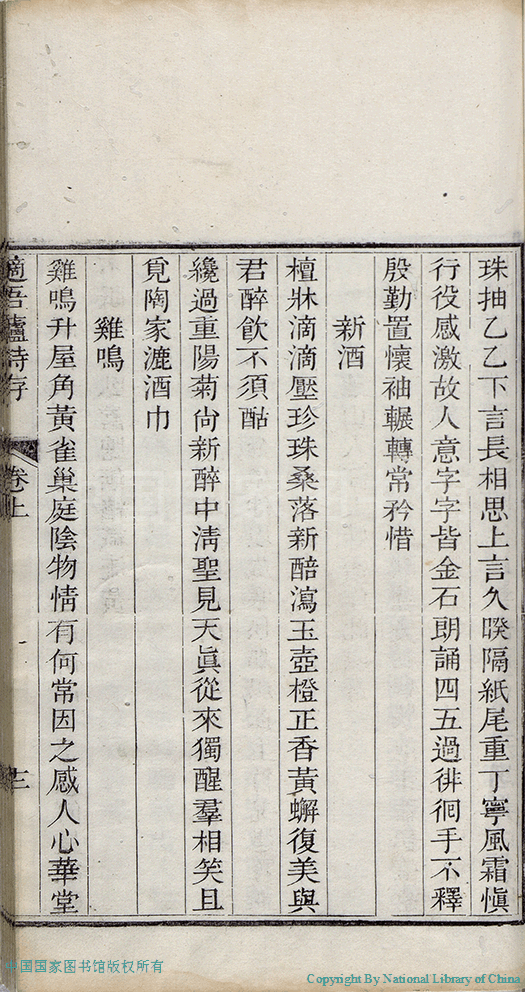 珠抽乙乙下言長相思上言久暌隔紙尾重丁寧風霜愼
行役感激故人意字字皆金石朗誦四五過徘徊手不釋
殷勤置懷袖輾轉常矜惜
新酒
檀牀滴滴壓珍珠桑落新醅瀉玉壺橙正香黃蠏復美與
君醉飲不須酤
纔過重陽菊尙新醉中淸聖見天眞從來獨醒羣相笑且
覓陶家漉酒巾
雞鳴
雞鳴升屋角黃雀巢庭陰物情有何常因之感人心華堂
吾廬詩存 卷上 三
中国国家图书馆版权所有
Copyright By National Library of China